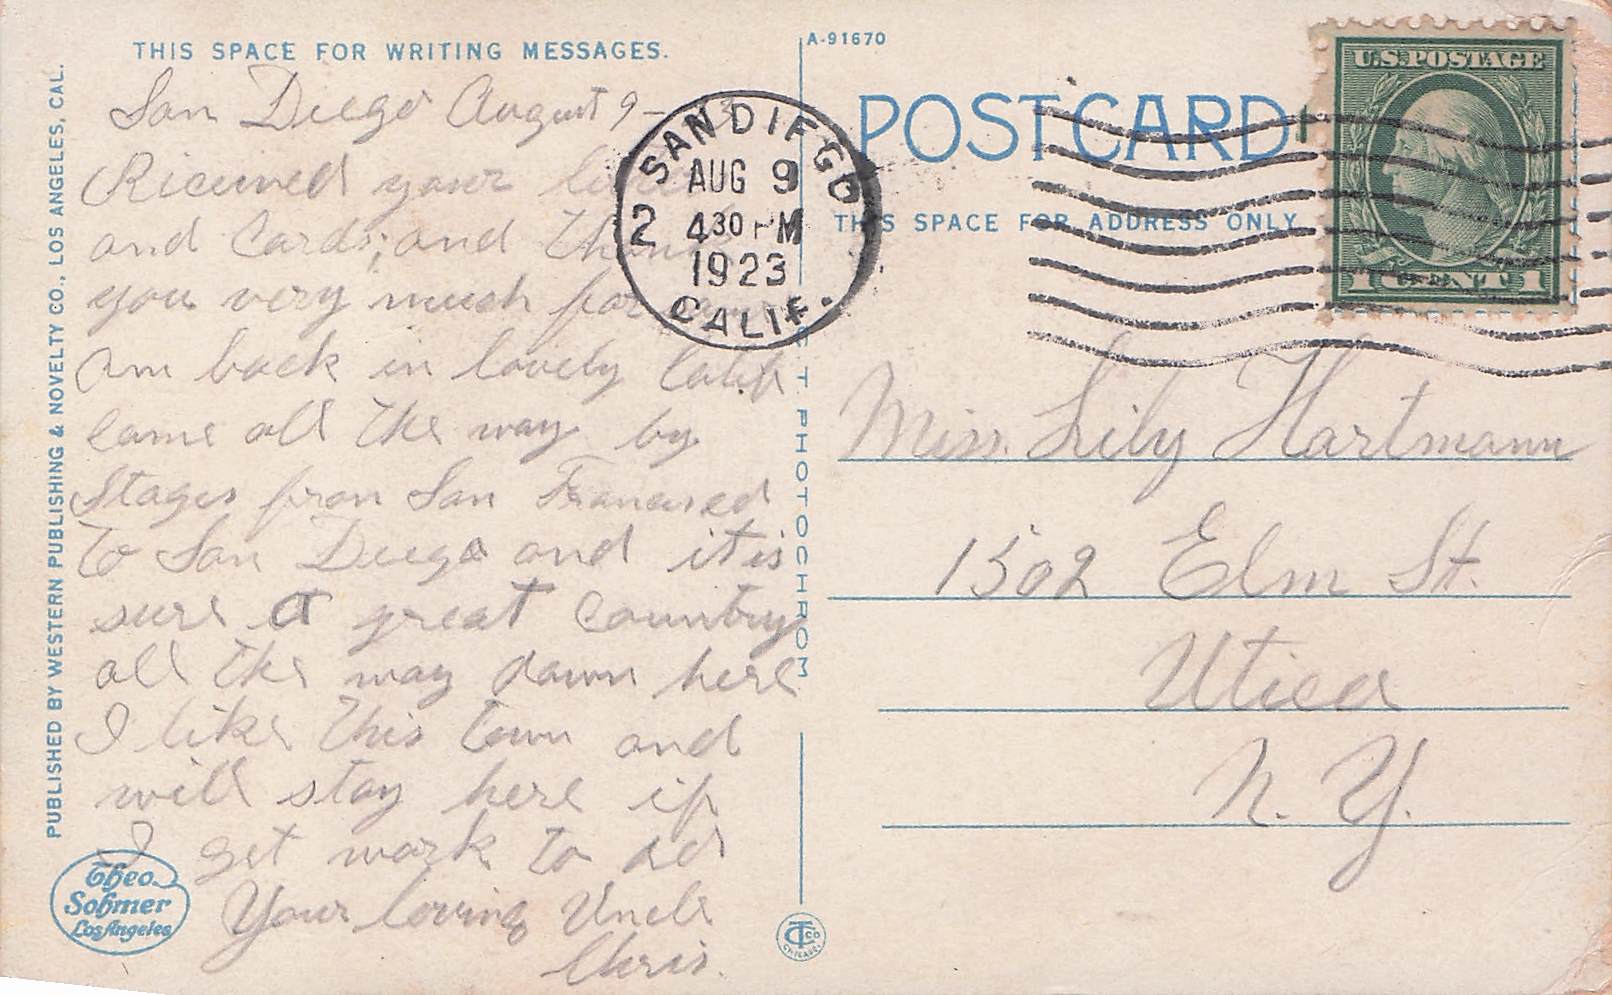 THIS SPACE FOR WRITING MESSAGES.
San Diego August 9 -
Received your
and Cards; and
you very much for
Am back in lovely Calif
came all the way by
Stages from San Francisco
to San Diego and it is
sure a great country
all the way down here
I like this town and
will stay here if
I get work to do
Your loving Uncle
Chris.
PUBLISHED BY WESTERN PUBLISHING & NOVELTY CO., LOS ANGELES, CAL.
Theo.
Sohmer
Los Angeles
SAN DIEGO
AUG 9
2 430 PM
1923
CALIF.
A-91670
POST CARD
THIS SPACE FOR ADDRESS ONLY.
U.S. POSTAGE
1 CENT 1
PHOTOCHROM
Miss. Lily Hartmann
1502 Elm St.
Utica
N. Y.
CT Co
CHICAGO